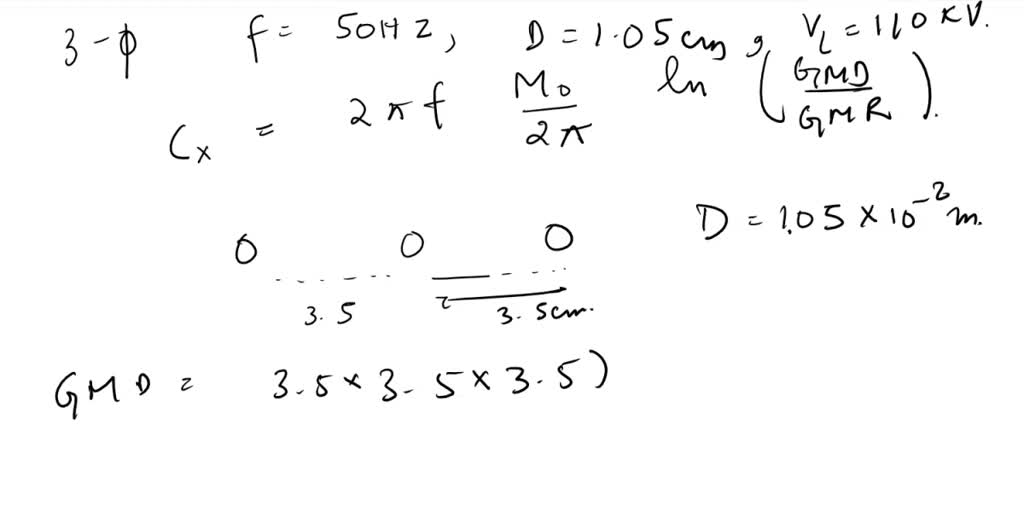 3-ϕ f = 50Hz, D = 1.05cm, V_L = 110 KV.
C_x = 2πf M_0/2π ln (GMD/GMR).
D = 1.05 × 10^-2 m.
O O O
3.5 3.5cm.
GMD = 3.5 × 3.5 × 3.5)